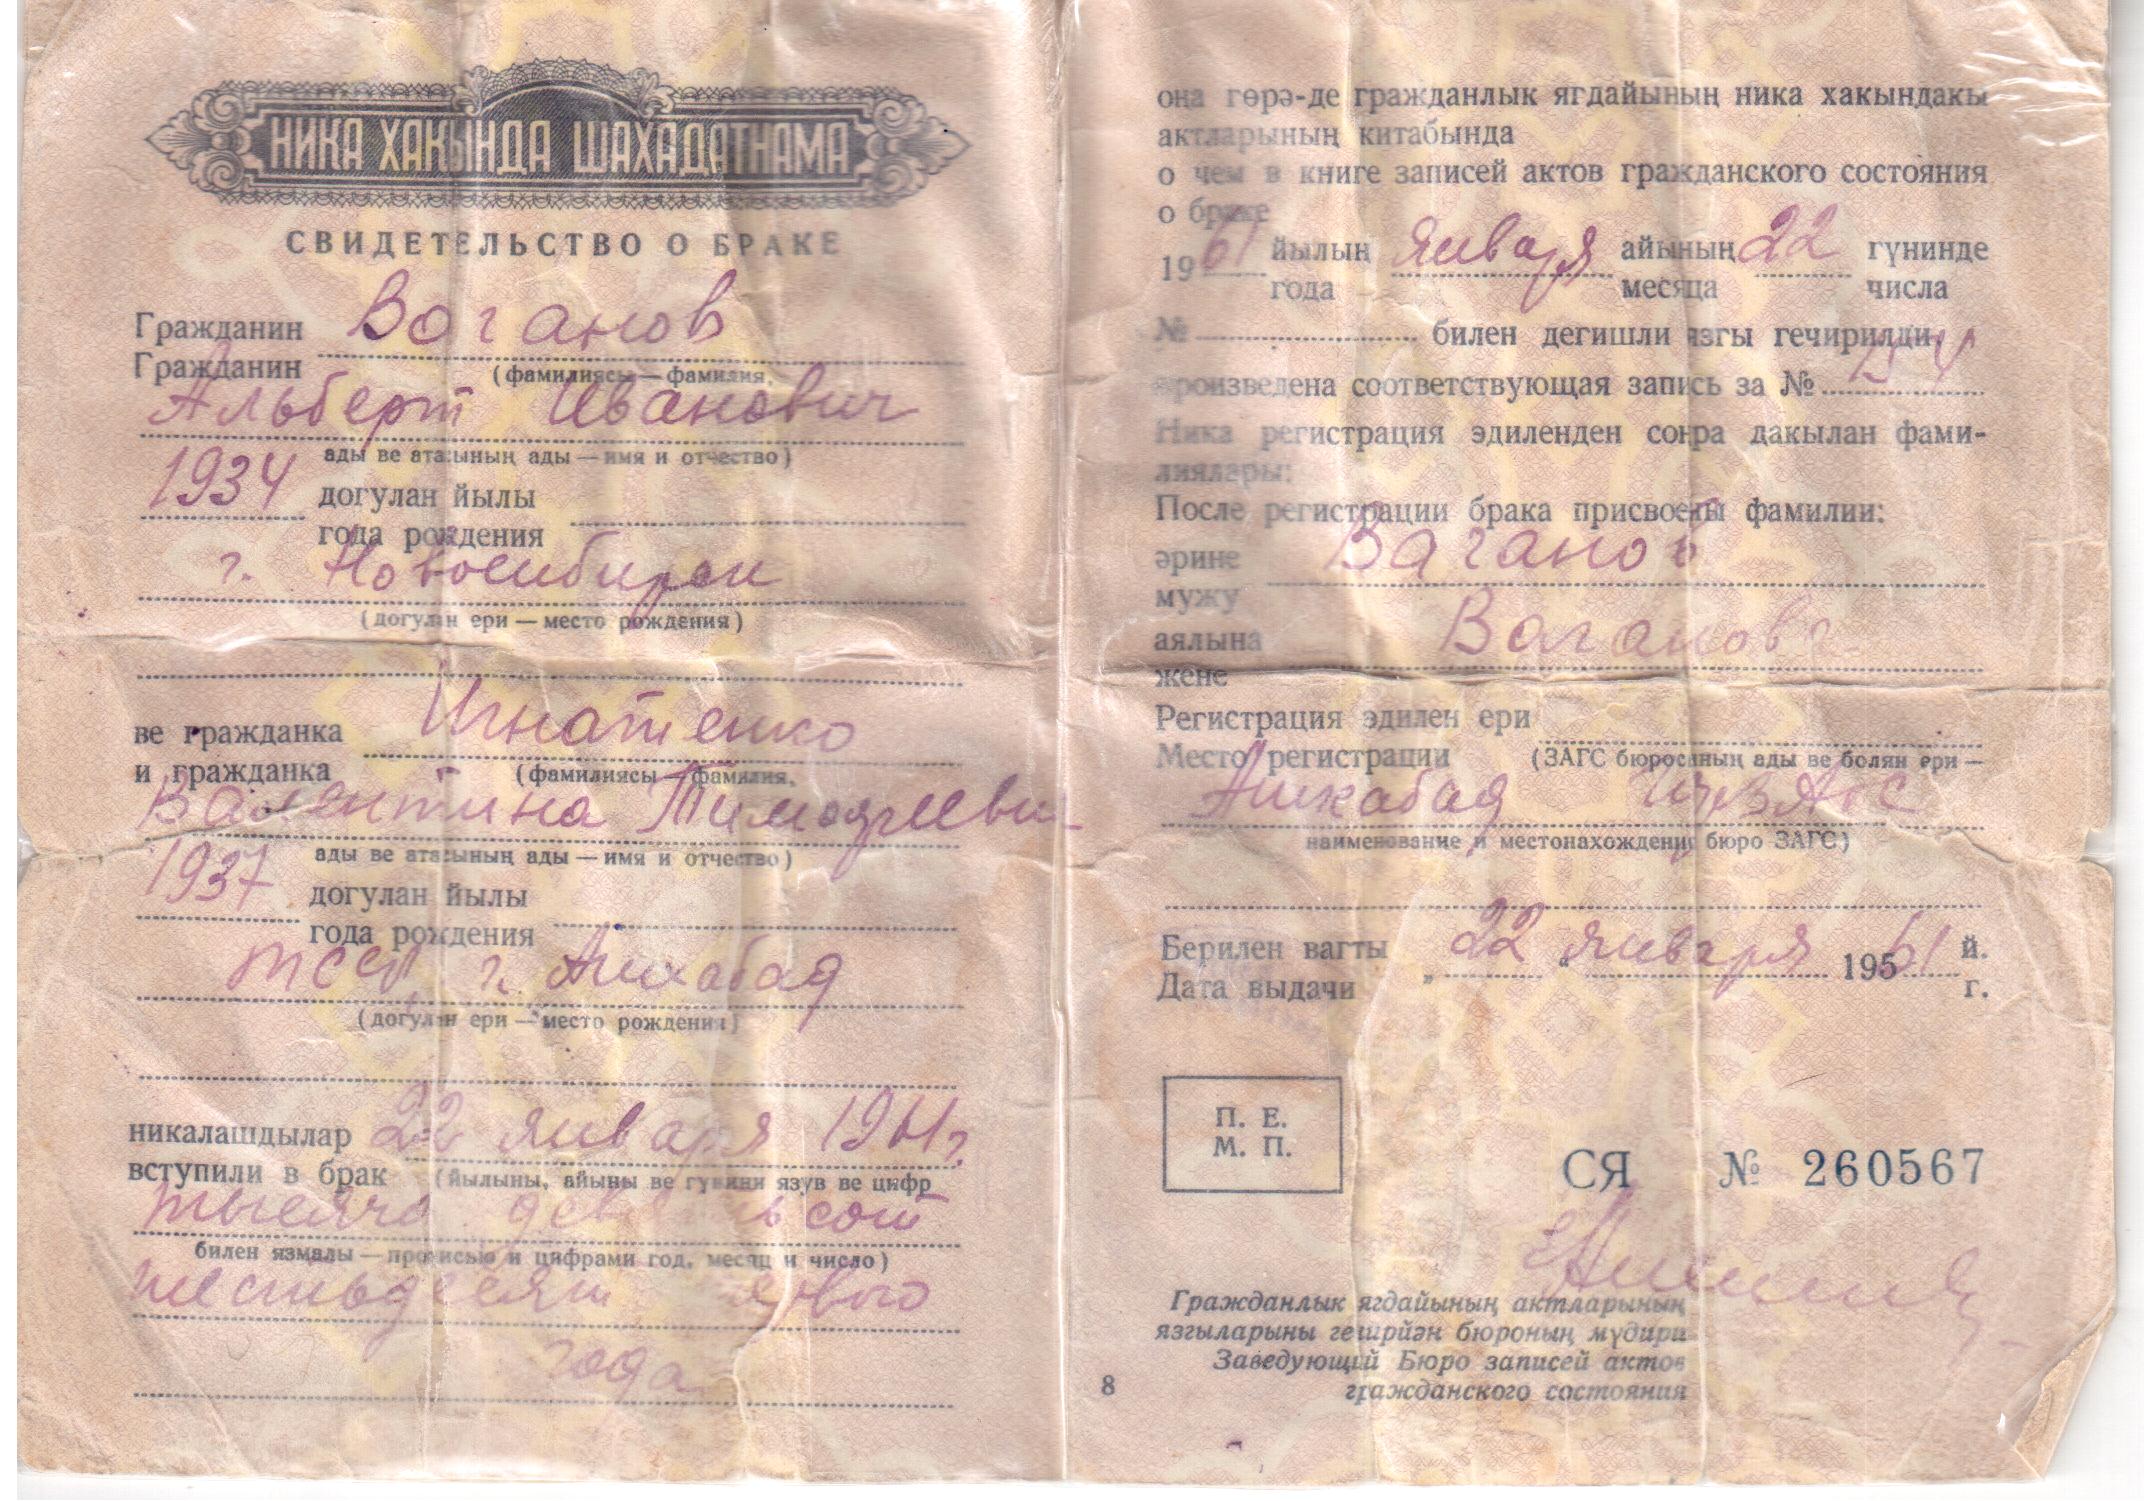 НИКА ХАКЫНДА ШАХАДАТНАМА
СВИДЕТЕЛЬСТВО О БРАКЕ
Гражданин Ваганов
Гражданин (фамилиясы — фамилия,
Альберт Иванович
ады ве атасының ады — имя и отчество)
1934 догулан йылы
года рождения
г. Новосибирск
(догулан ери — место рождения)
ве гражданка Игнатенко
и гражданка (фамилиясы — фамилия,
Валентина Тимофеевна
ады ве атасының ады — имя и отчество)
1937 догулан йылы
года рождения
ТССР г. Ашхабад
(догулан ери — место рождения)
никалашдылар 22 января 1961 г.
вступили в брак (йылыны, айыны ве гүнини язув ве цифр
тысяча девятьсот
билен язмалы — прописью и цифрами год, месяц и число)
шестьдесят первого
года
оңа гөрә-де гражданлык ягдайының ника хакындакы
актларының китабында
о чем в книге записей актов гражданского состояния
о браке
1961 йылың января айының 22 гүнинде
года месяца числа
№ билен дегишли язгы гечирилди
произведена соответствующая запись за № 154
Ника регистрация эдиленден соңра дакылан фами-
лиялары:
После регистрации брака присвоены фамилии:
әрине Ваганов
мужу
аялына Ваганова
жене
Регистрация эдилен ери
Место регистрации (ЗАГС бюросының ады ве болян ери —
Ашхабад
наименование и местонахождение бюро ЗАГС)
Берилен вагты „22“ января 1961 й.
Дата выдачи г.
П. Е.
М. П.
СЯ № 260567
Гражданлык ягдайының актларының
язгыларыны гечирйән бюроның мүдири
Заведующий Бюро записей актов
гражданского состояния
8